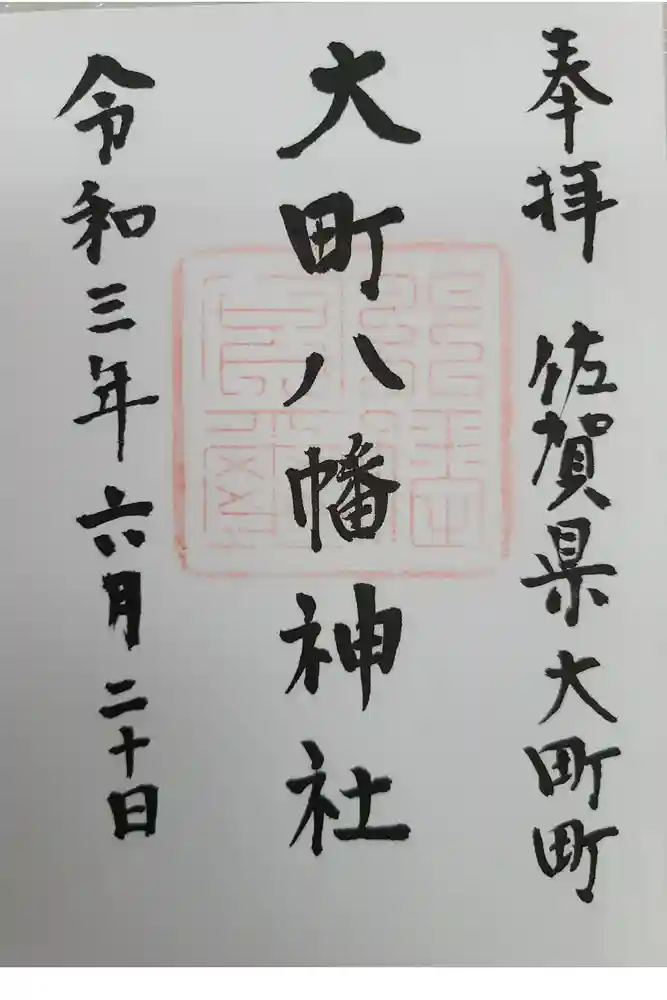 奉拝 佐賀県大町町
大町八幡神社
令和三年六月二十日